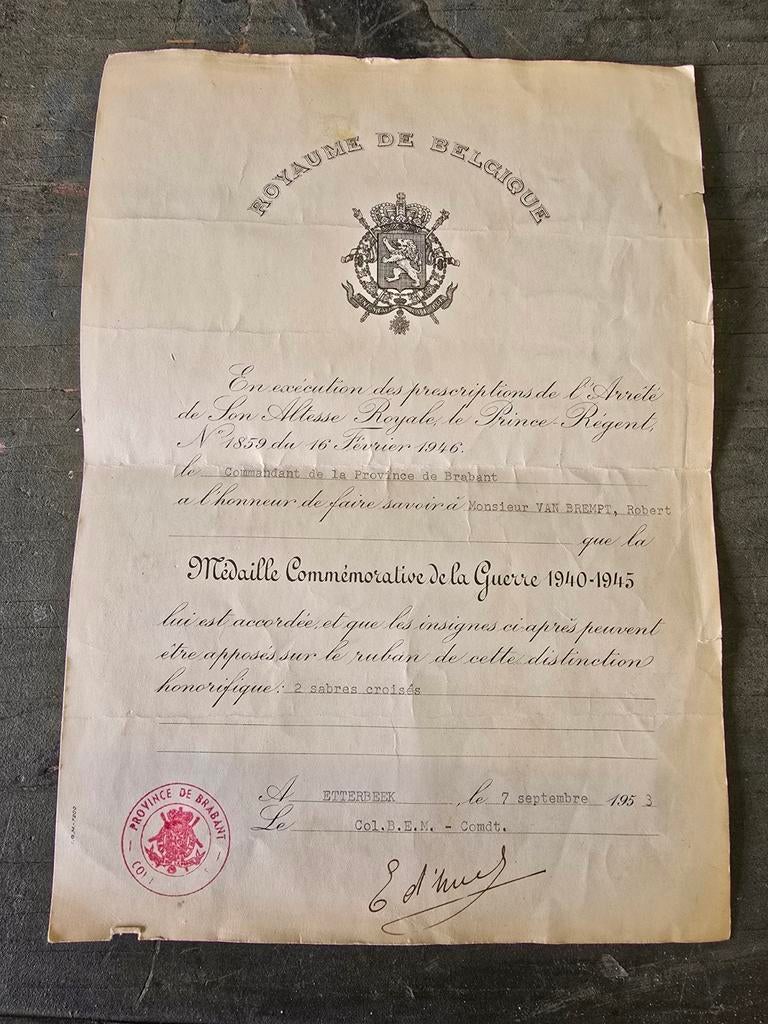 ROYAUME DE BELGIQUE
En exécution des prescriptions de l'Arrêté
de Son Altesse Royale, le Prince-Régent,
N° 1859 du 16 Février 1946.
le Commandant de la Province de Brabant
a l'honneur de faire savoir à Monsieur VAN BREMPT, Robert
que la
Médaille Commémorative de la Guerre 1940-1945
lui est accordée, et que les insignes ci-après peuvent
être apposés sur le ruban de cette distinction
honorifique: 2 sabres croisés
A ETTERBEEK, le 7 septembre 1953
Le Col.B.E.M. - Comdt.
PROVINCE DE BRABANT